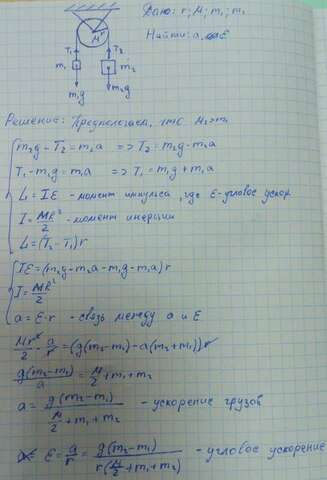 Дано: r; M; m₁; m₂
Найти: a, E
M r
T₁ T₂
m₁ m₂
m₁g
m₂g
Решение: Предполагаем, что m₂>m₁
m₂g - T₂ = m₂a => T₂ = m₂g - m₂a
T₁ - m₁g = m₁a => T₁ = m₁g + m₁a
L = IE - момент импульса, где E - угловое ускор.
I = MR²/2 - момент инерции
L = (T₂ - T₁)r
IE = (m₂g - m₂a - m₁g - m₁a)r
I = MR²/2
a = E·r - связь между a и E
Mr²/2 · a/r = (g(m₂-m₁) - a(m₂+m₁))r
g(m₂-m₁)/a = M/2 + m₁ + m₂
a = g(m₂-m₁)/(M/2 + m₁ + m₂) - ускорение грузов
E = a/r = g(m₂-m₁)/(r(M/2 + m₁ + m₂)) - угловое ускорение